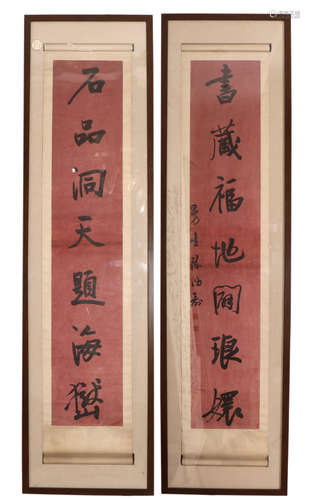 書藏福地開琅嬛
石品洞天題海嶽